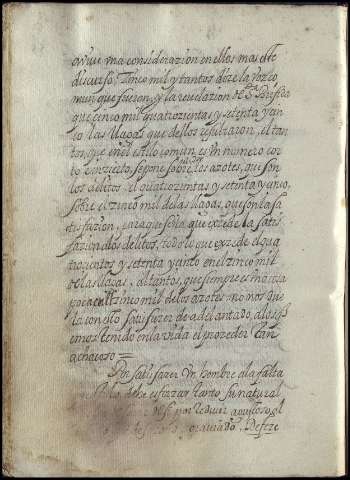 aqui una consideracion en ellos mas este
discurso. Cinco mil y tantos dize la voz co
mun que fueron, y la revelazion de S.ta Brisida
que cinco mil quatrozientas y setenta y cin
co las llagas que dellos resultaron, el tan
tos, que en el estilo comun es un numero cor
to e incierto, se pone sobre los azotes, que son
los delitos, el quatrozientas y setenta y cinco,
sobre el zinco mil de las llagas, que son la sa
tisfazion, para que se vea que exzede la satis
fazion a los delitos, todo lo que exzede a qua
trozientos y setenta y cinto en el zinco mil
de las llagas, al tantos, que siempre es cosa
poca en el zinco mil de los azotes: no mas que
la con esto satisfazer de adelantado, a los q̃
emos tenido en la vida el prozeder tan
achacoso =
Por satisfazer un hombre a la falta
deve esforzar tanto su natural
por reduzir
Defeze